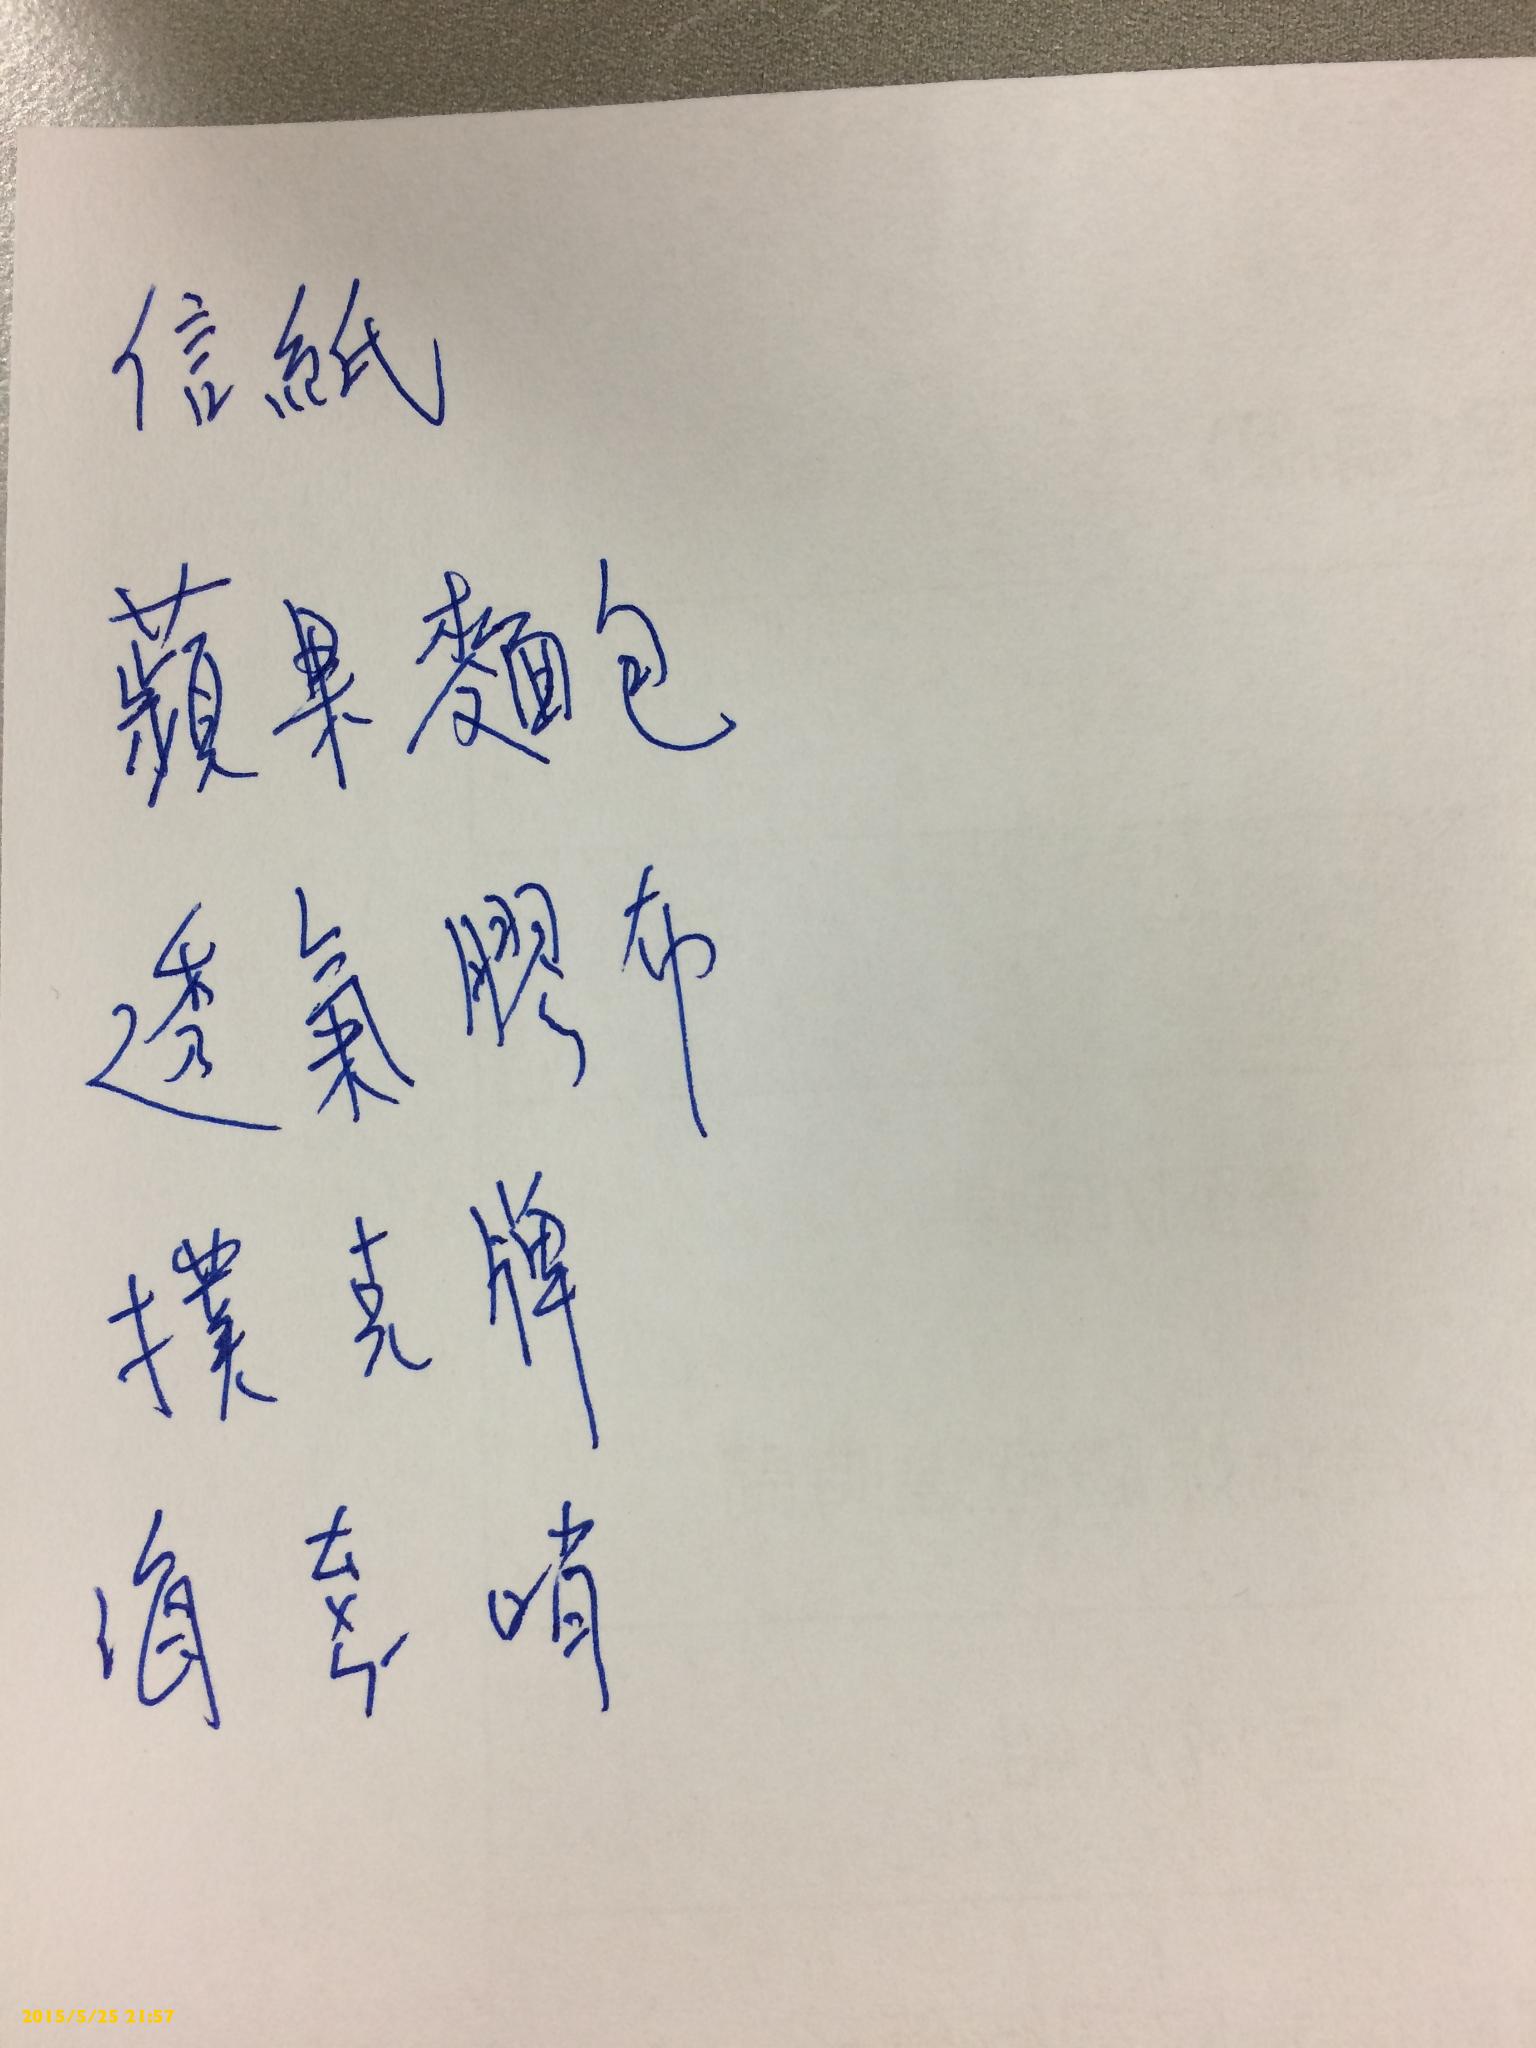 信紙
蘋果麵包
透氣膠布
撲克牌
海喜哨
2015/5/25 21:57